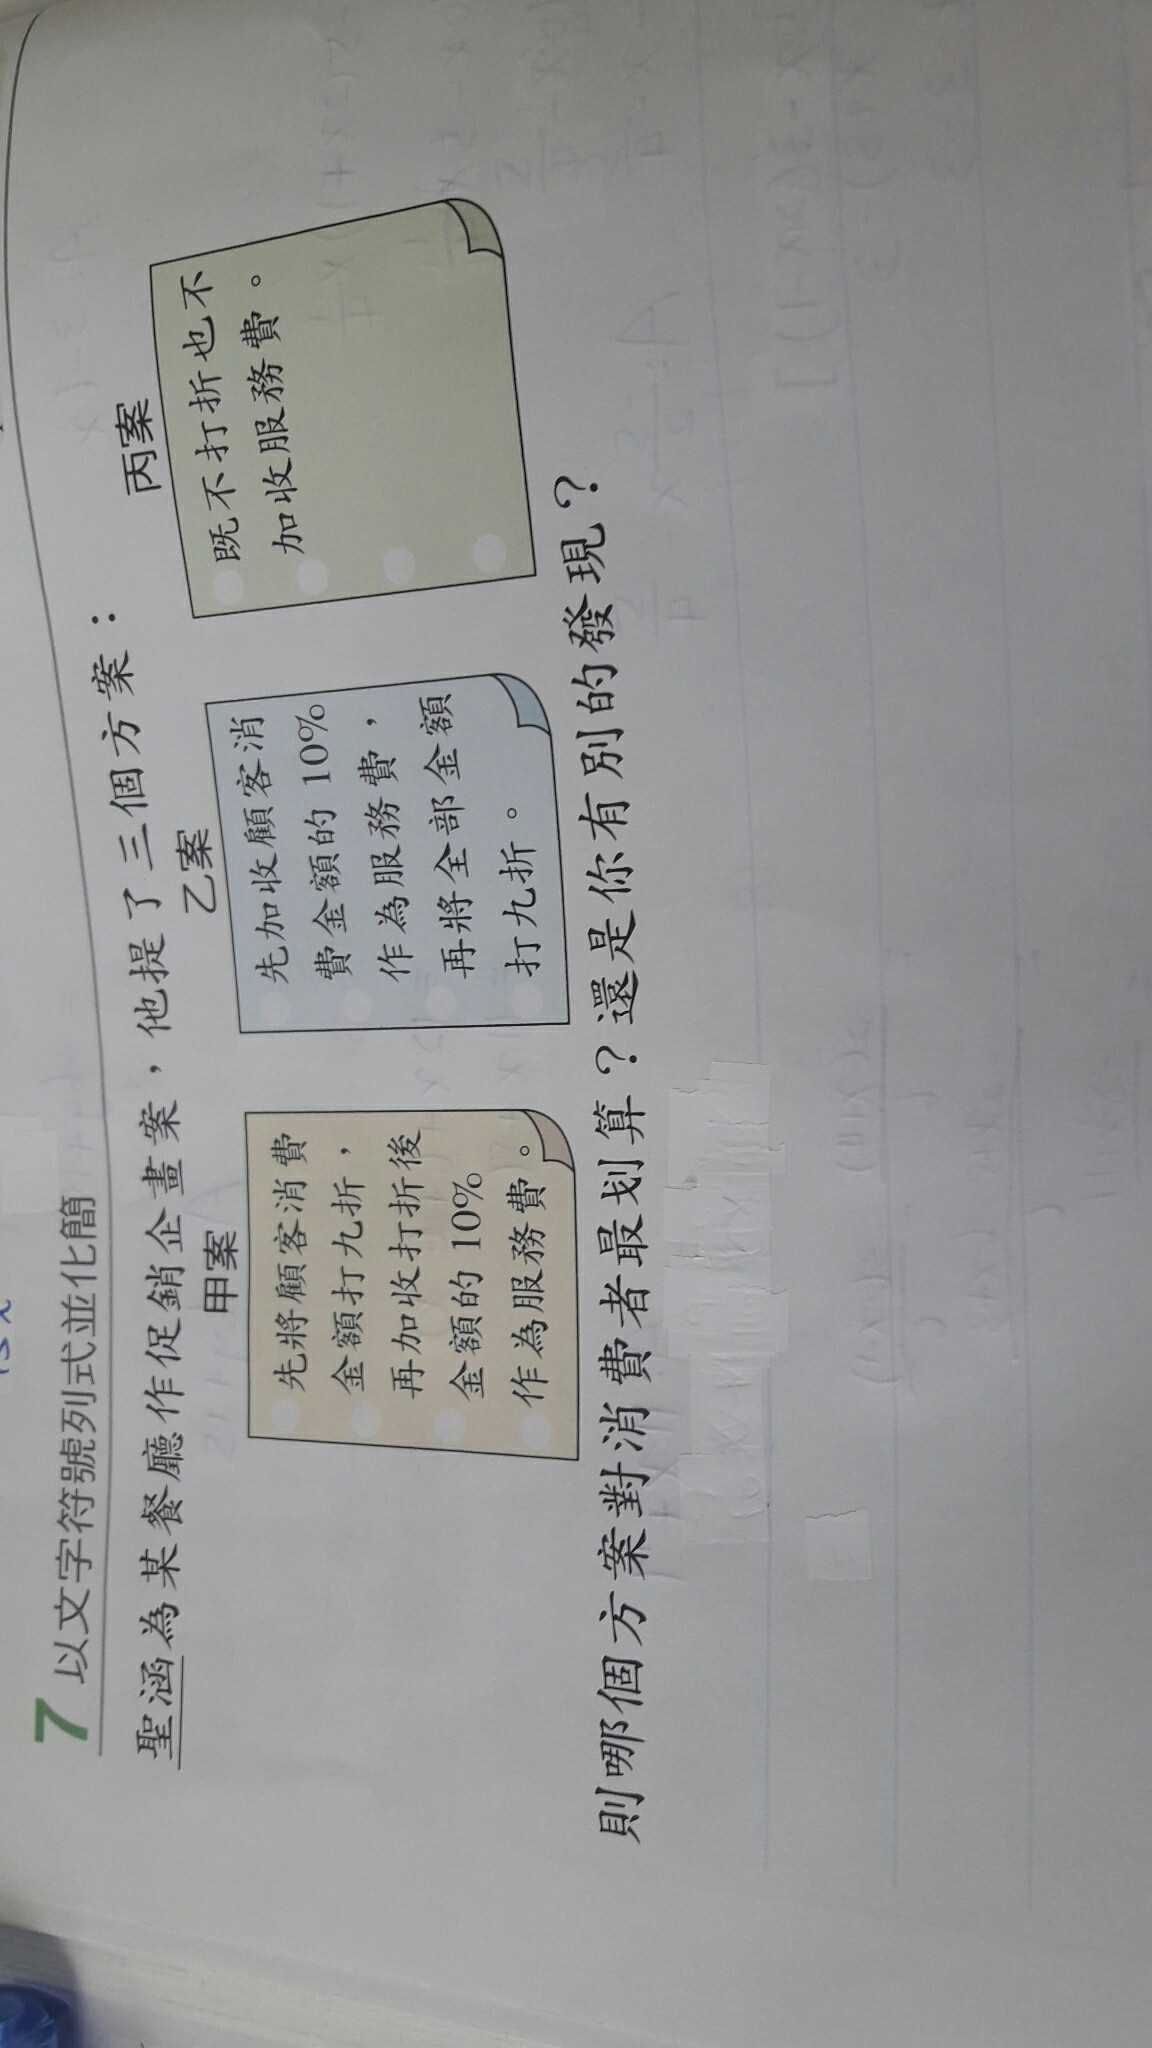 7 以文字符號列式並化簡
聖涵為某餐廳作促銷企畫案，他提了三個方案：
甲案
先將顧客消費
金額打九折，
再加收打折後
金額的 10%
作為服務費。
乙案
先加收顧客消
費金額的 10%
作為服務費，
再將全部金額
打九折。
丙案
既不打折也不
加收服務費。
則哪個方案對消費者最划算？還是你有別的發現？